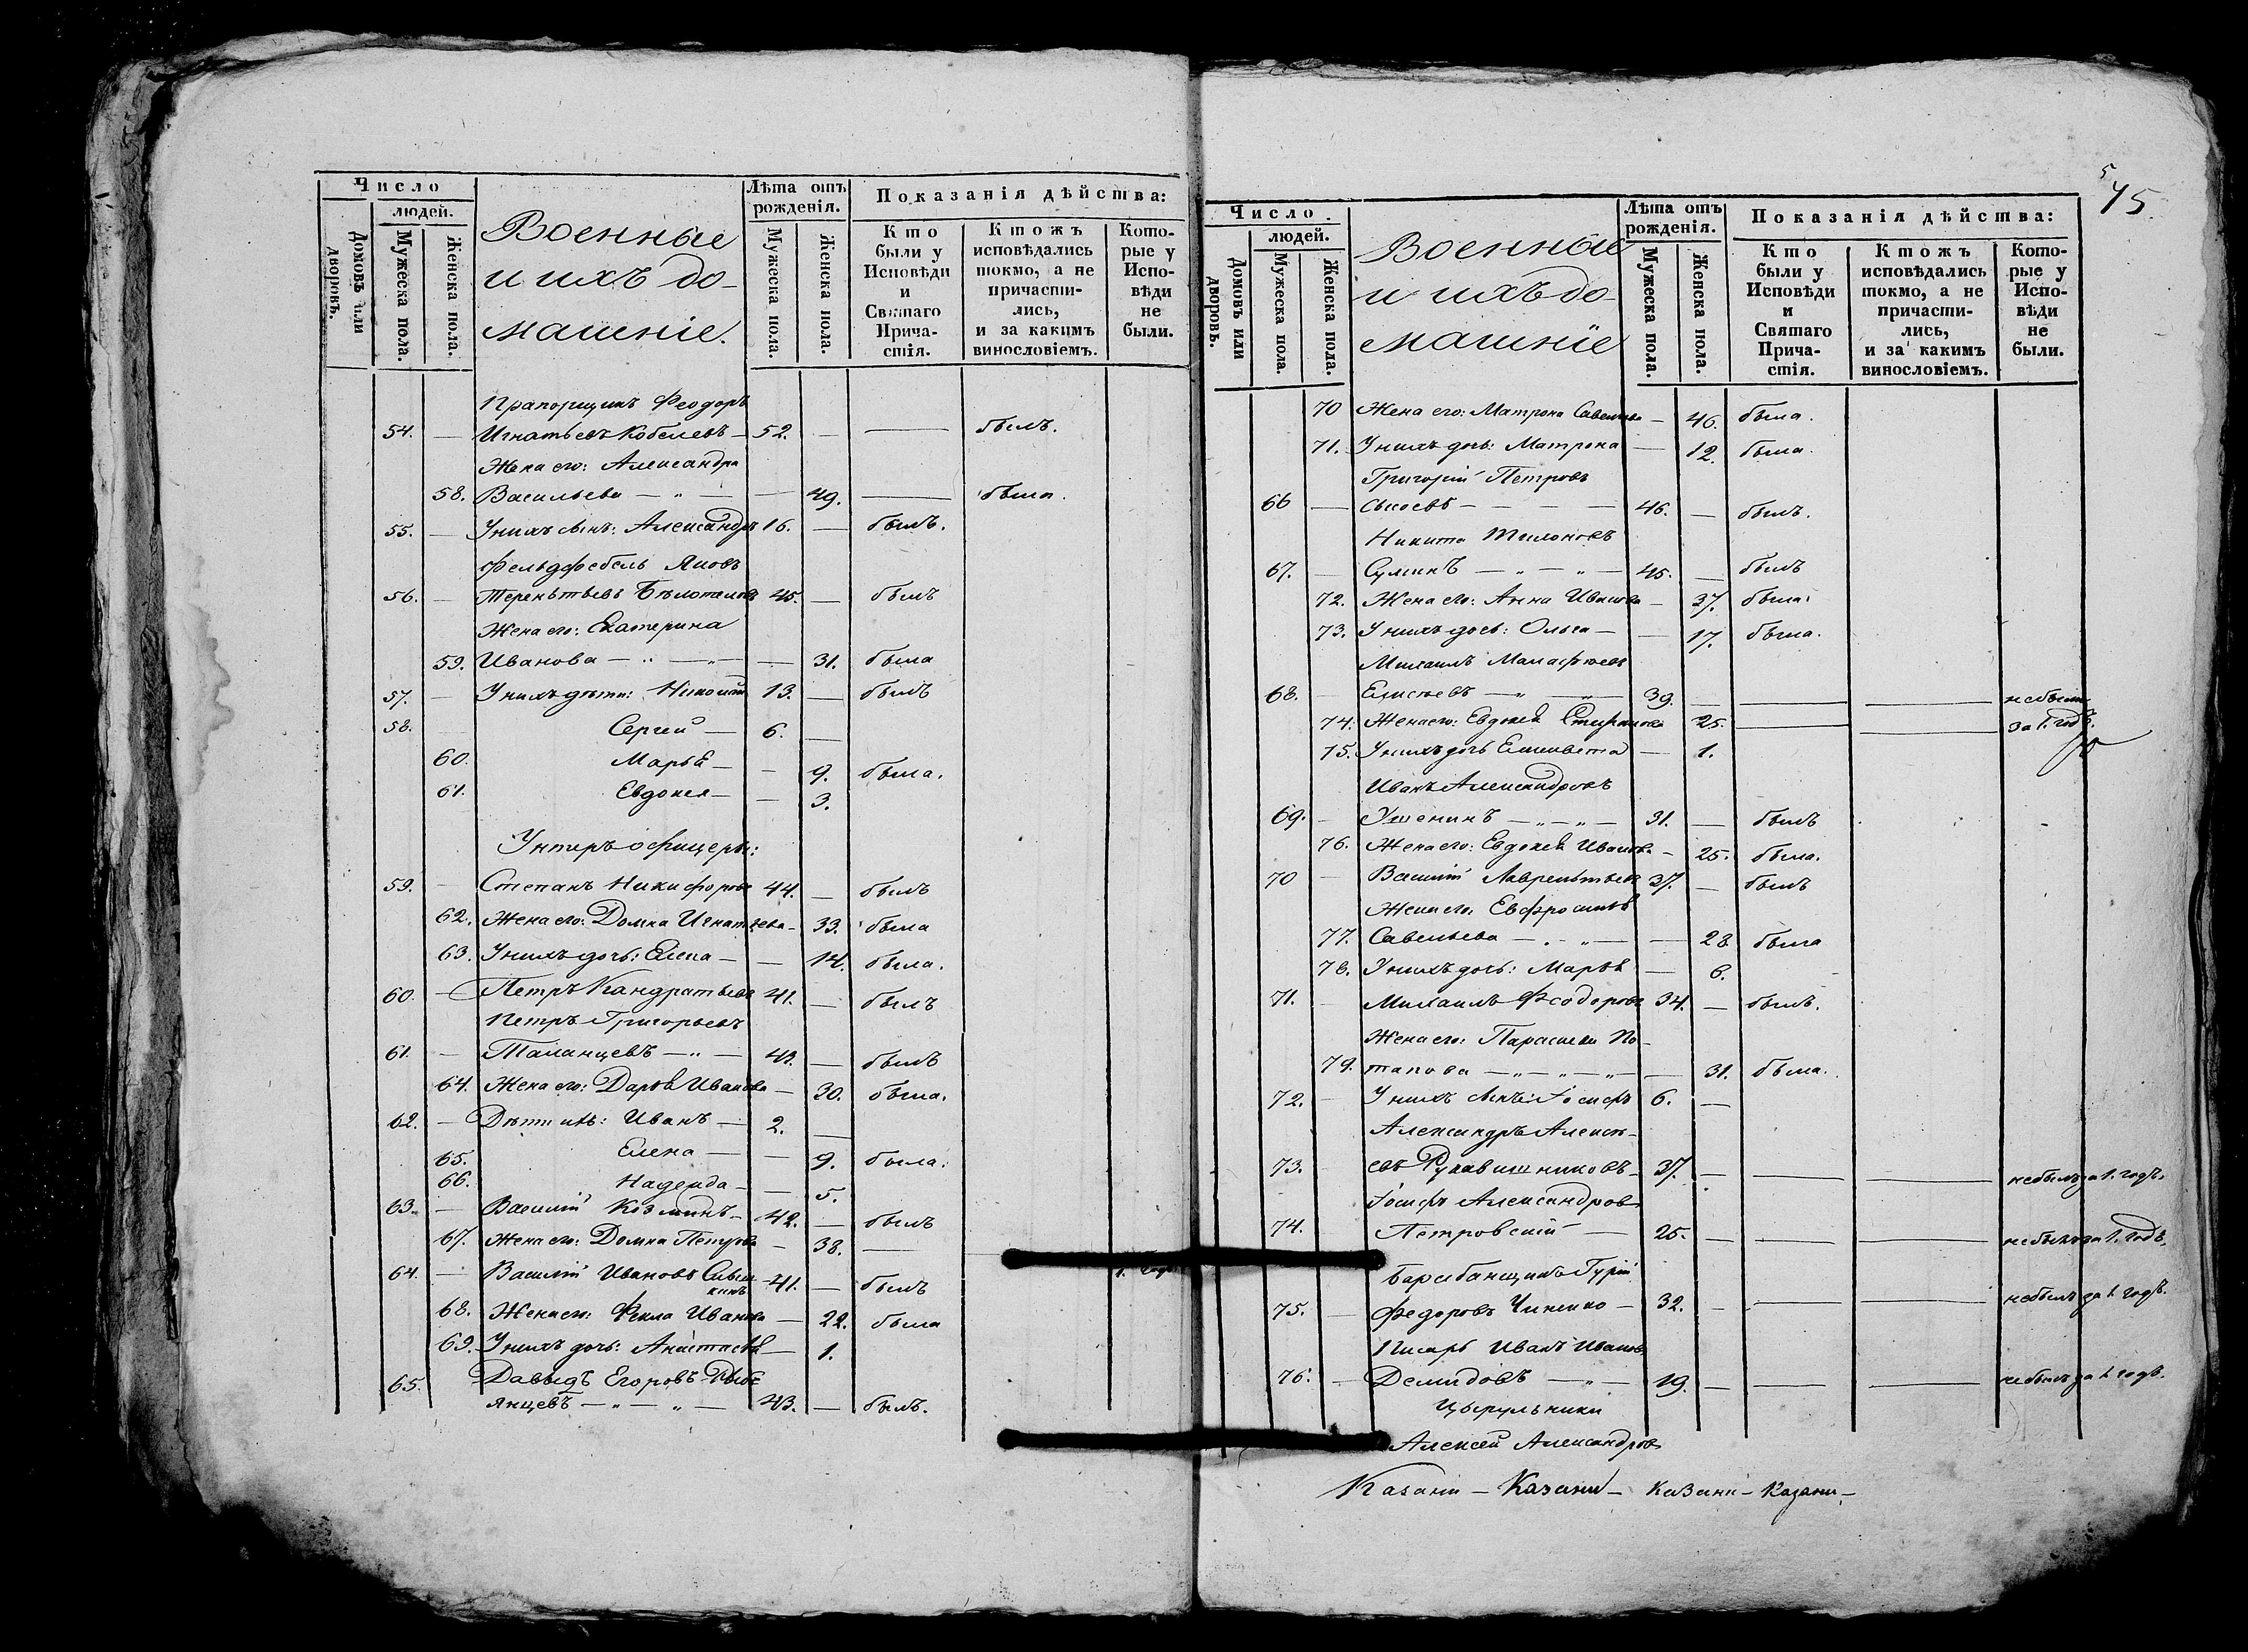 Число
людей.
Домовъ или дворовъ.
Мужеска пола.
Женска пола.
Военные
и ихъ до-
машніе.
Лѣта отъ
рожденія.
Мужеска пола.
Женска пола.
Показанія дѣйства:
Кто были у Исповѣди и Святаго Прича-стія.
Ктожъ исповѣдались токмо, а не причасти-лись, и за какимъ винословіемъ.
Кото-рые у Испо-вѣди не были.
Прапорщикъ Феодоръ
54. — Игнатьевъ Кобелевъ — 52. — — былъ.
Жена его: Александра
58. Васильева — „ — — 49. — была.
55. — У нихъ сынъ: Александръ 16. — былъ.
Фельдфебель Яковъ
56. — Терентьевъ 45. — былъ
Жена его: Екатерина
59. Иванова — „ — „ — — 31. была
57. — У нихъ дѣти: Николай 13. — былъ
58. Сергей — 6. —
60. Марья — — 9. была.
61. Евдокея — — 3.
Унтеръ офицеры:
59. — Степанъ Никифоровъ 44. — былъ
62. Жена его: Домна Игнатьева — 33. была
63. У нихъ дочь: Елена — — 14. была.
60. — Петръ Кандратьевъ 41. — былъ
Петръ Григорьевъ
61. — Таланцевъ — „ — 43. — былъ
64. Жена его: Дарья Иванова — 30. была.
62. — Дѣти ихъ: Иванъ — 2. —
65. Елена — — 9. была.
66. Надежда — — 5.
63. — Василій Козминъ — 42. — былъ
67. Жена его: Домна Петрова — 38. —
64. — Василій Ивановъ — 41. — былъ
68. Жена его: Фекла Иванова — 22. была
69. У нихъ дочь: Анастасья — 1.
65. Давыдъ Егоровъ
янцевъ — „ — „ — 43. — былъ.
5
Число
людей.
Домовъ или дворовъ.
Мужеска пола.
Женска пола.
Военные
и ихъ до-
машніе
Лѣта отъ
рожденія.
Мужеска пола.
Женска пола.
Показанія дѣйства:
Кто были у Исповѣди и Святаго Прича-стія.
Ктожъ исповѣдались токмо, а не причасти-лись, и за какимъ винословіемъ.
Кото-рые у Испо-вѣди не были.
70 Жена его: Матрона Савельева — 46. была.
71. У нихъ дочь: Матрона — 12. была.
Григорій Петровъ
66 — Сысоевъ — — — — 46. — былъ.
Никита
67. — Суминъ — „ — „ — 45. — былъ
72. Жена его: Анна Иванова — 37. была.
73. У нихъ дочь: Ольга — — 17. была.
Михаилъ
68. — Елисеевъ — „ — „ — 39. — — — небылъ
74. Жена его: Евдокея 25. — — за 1. годъ.
75. У нихъ дочь Елисавета — 1.
Иванъ Александровъ
69. — — „ — „ — 31. — былъ
76. Жена его: Евдокея Иванова — 25. была.
70 — Василій Лаврентьевъ 37. — былъ
Жена его: Евфросинья
77. Савельева — „ — „ — — 28 была
78. У нихъ дочь: Марья — 6.
71. — Михаилъ Феодоровъ 34. — былъ.
Жена его: Параскева По-
79. тапова — „ — „ — „ — — 31. была.
72. — У нихъ сынъ: Іосифъ 6. —
Александръ Алексѣ-
73. евъ Рукавишниковъ — 37. — — — небылъ за 1. годъ.
Іосифъ Александровъ
74. Петровскій — 25. — — — небылъ за 1. годъ.
Барабанщикъ Гурій
75. — Федоровъ Чиненко — 32. — — — небылъ за 1. годъ.
Писарь Иванъ Ивановъ
76. — Демидовъ — „ — 19. — — — небылъ за 1. годъ.
Цырульники
Алексей Александровъ
Казани — Казани — Казани — Казани —